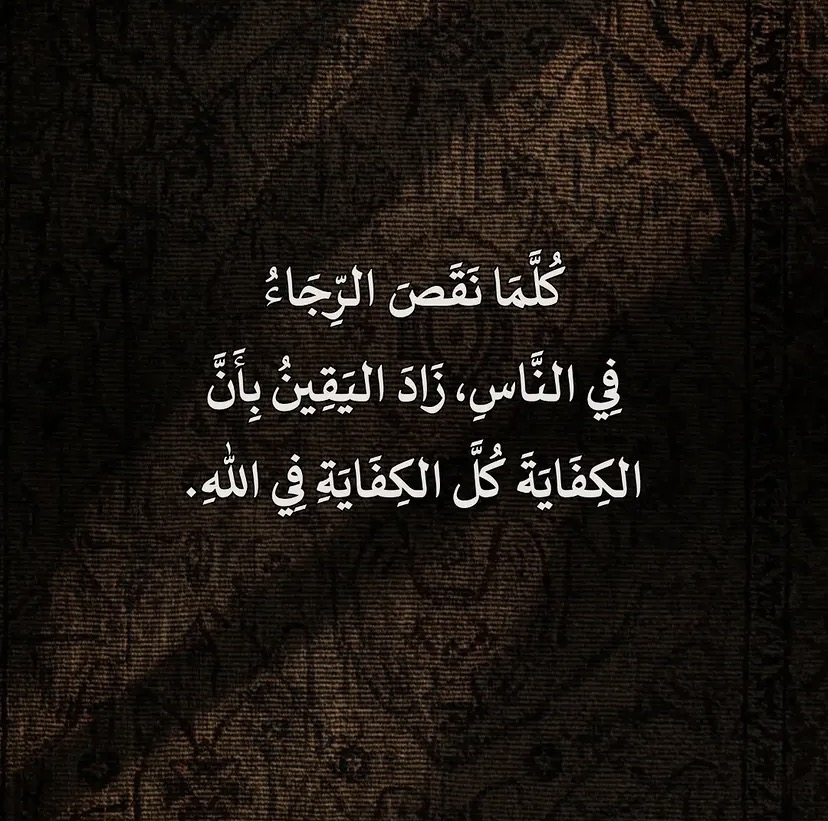 كُلَّمَا نَقَصَ الرِّجَاءُ
فِي النَّاسِ، زَادَ اليَقِينُ بِأَنَّ
الكِفَايَةَ كُلَّ الكِفَايَةِ فِي اللهِ.